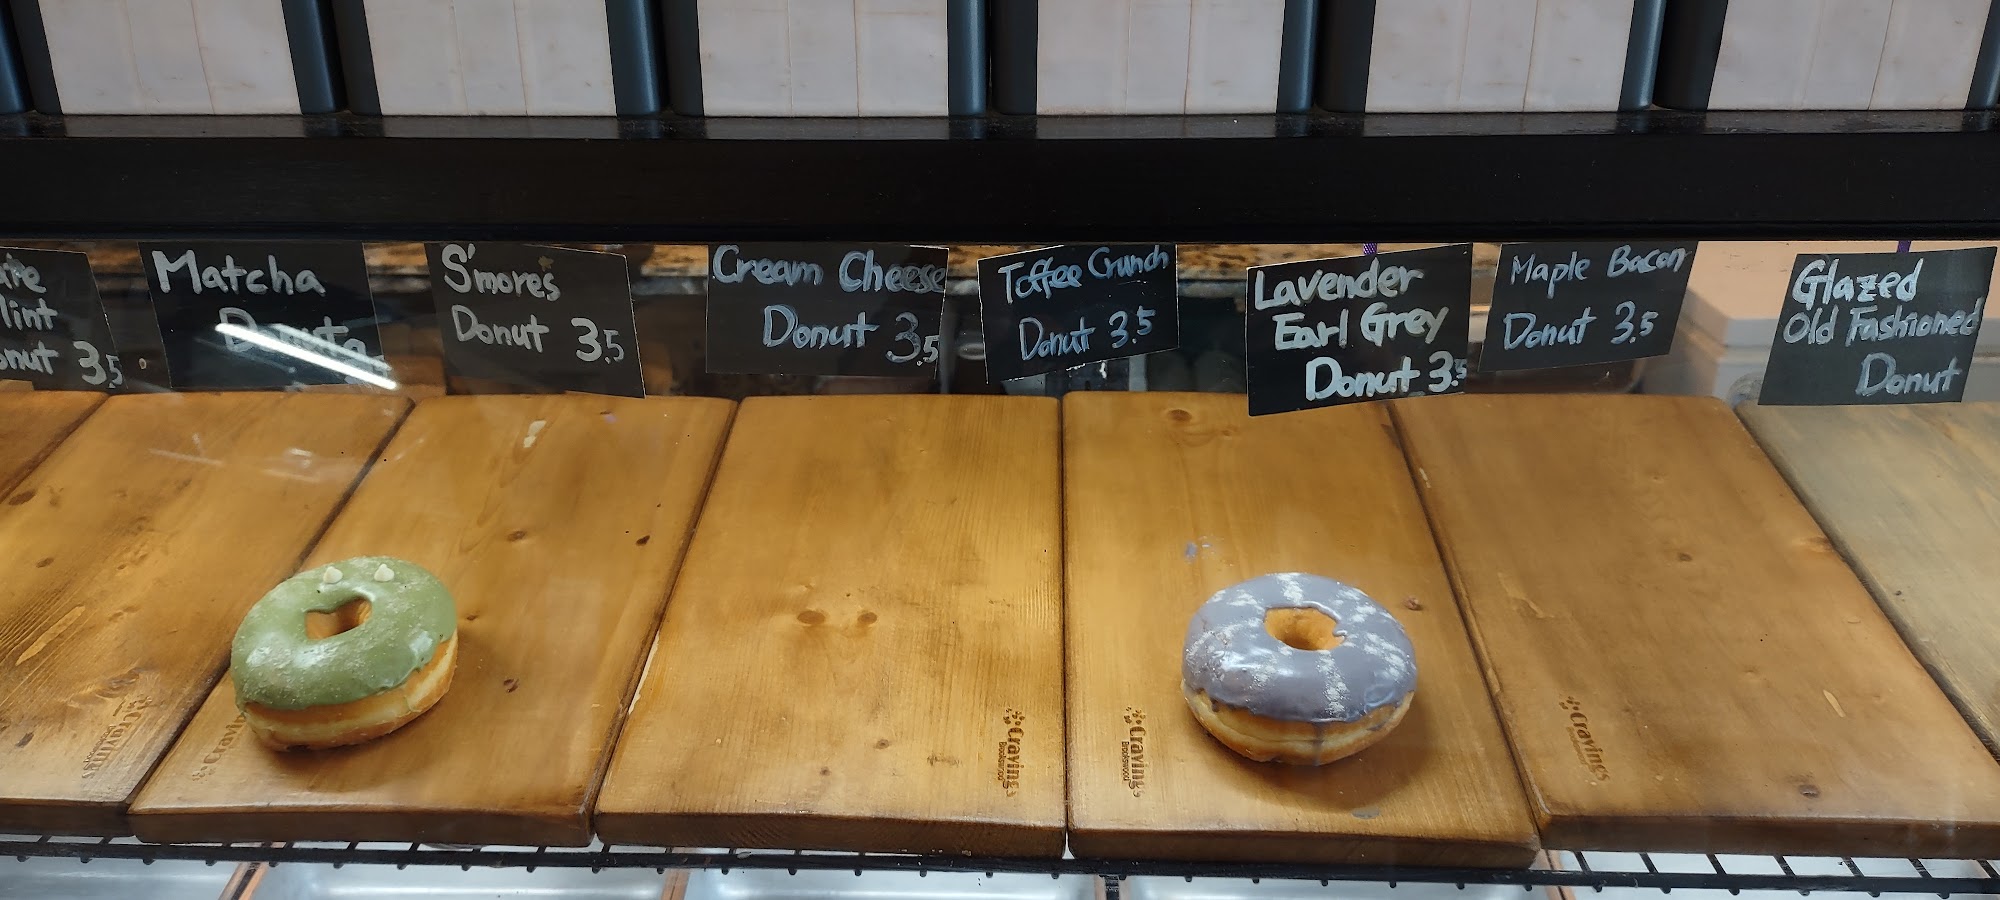 Mint
Donut 3.5
Matcha
Donuts
S'mores
Donut 3.5
Cream Cheese
Donut 3.5
Toffee Crunch
Donut 3.5
Lavender
Earl Grey
Donut 3.5
Maple Bacon
Donut 3.5
Glazed
Old Fashioned
Donut
Cravings
Cravings
Cravings
Brookswood
Cravings
Brookswood
Cravings